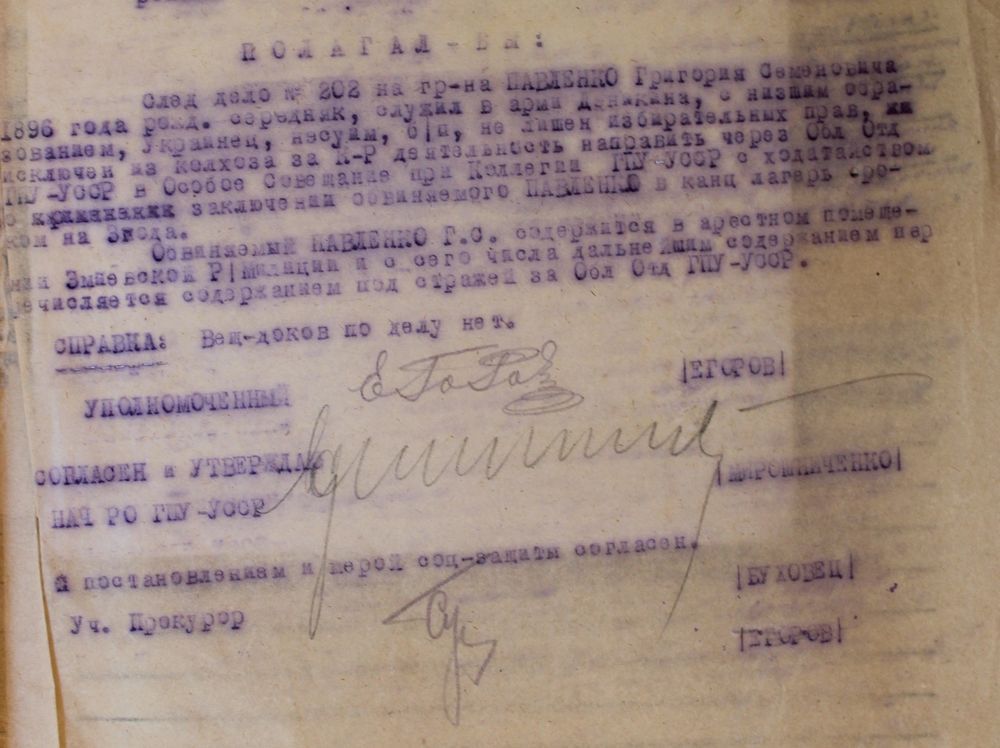 ПОЛАГАЛ-БЫ:
След дело № 202 на гр-на ПАВЛЕНКО Григория Семеновича
1896 года рожд. середняк, служил в арми Деникина, с низшим обра-
зованием, Украинец, несудим, б/п, не лишен избирательных прав,
исключен из колхоза за К-Р деятельность направить через Обл Отд
ГПУ-УССР в Особое Совещание при Коллегии ГПУ-УССР с ходатайством
о заключении обвиняемого ПАВЛЕНКО в канц лагерь сро-
ком на 3года.
Обвиняемый ПАВЛЕНКО Г.С. содержится в арестном помеще-
нии Змиевской Р/Милиции и с сего числа дальнейшим содержанием пер
речисляется содержанием под стражей за Обл Отд ГПУ-УССР.
СПРАВКА: Вещ-доков по делу нет.
УПОЛНОМОЧЕННЫЙ |ЕГОРОВ|
СОГЛАСЕН и УТВЕРЖДАЮ
НАЧ РО ГПУ-УССР |МИРОШНИЧЕНКО|
постановлениям и мерой соц-защиты согласен.
Уч. Прокурор |БУХОВЕЦ|
|ЕГОРОВ|